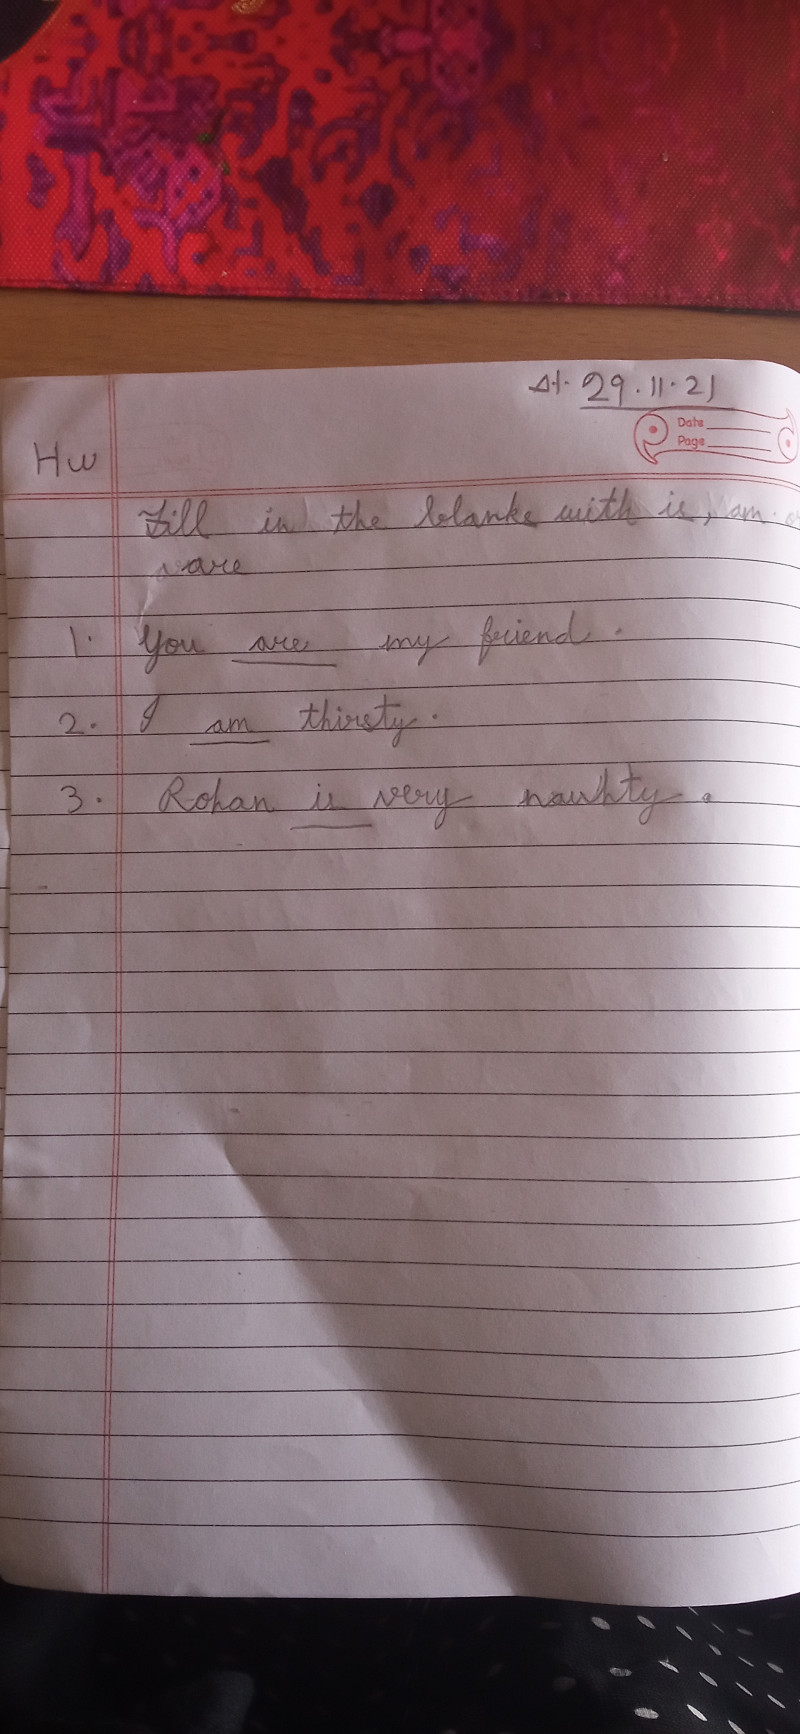 dt. 29.11.21
Date
Page
Hw
Fill in the blanks with is, am
are
1. You are my friend.
2. I am thirsty.
3. Rohan is very nauhty.